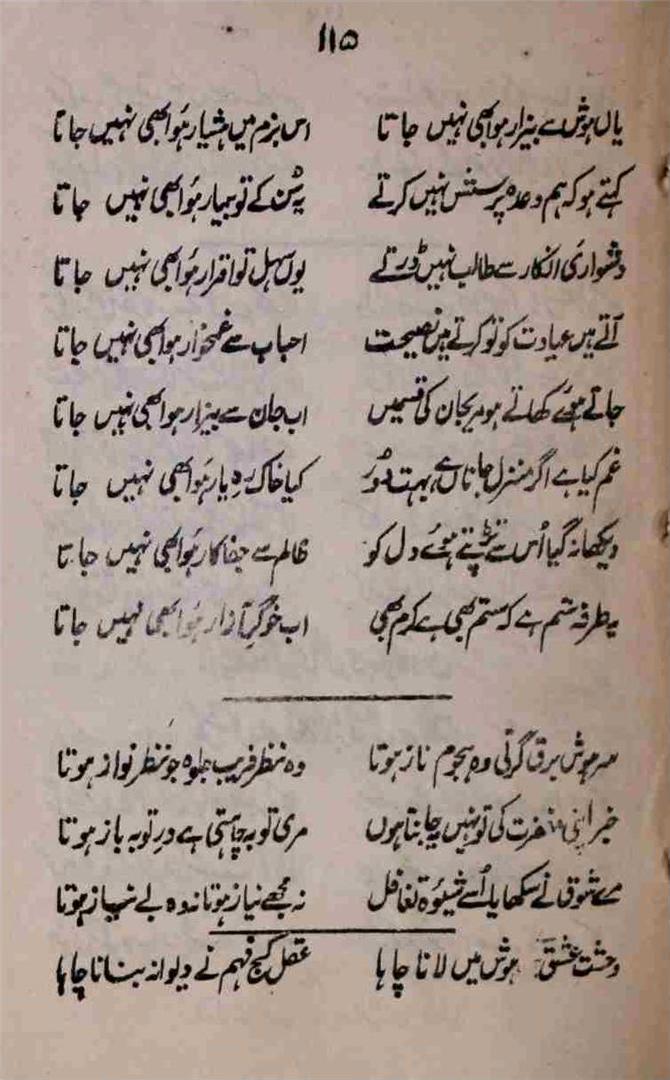 ۱۱۵
یاں ہوش سے بیزار ہوا بھی نہیں جاتا اس بزم میں ہشیار ہوا بھی نہیں جاتا
کہتے ہو کہ ہم وعدہ پرسش نہیں کرتے یہ سُن کے تو بیمار ہوا بھی نہیں جاتا
دشواریٔ انکار سے طالب نہیں ڈرتے یوں سہل تو اقرار ہوا بھی نہیں جاتا
آتے ہیں عیادت کو تو کرتے ہیں نصیحت احباب سے غمخوار ہوا بھی نہیں جاتا
جاتے ہوئے کھاتے ہو مری جان کی قسمیں اب جان سے بیزار ہوا بھی نہیں جاتا
غم کیا ہے اگر منزل جاناں ہے بہت دُور کیا خاک رہِ یار ہوا بھی نہیں جاتا
دیکھا نہ گیا اُس سے تڑپتے ہوئے دل کو ظالم سے جفاکار ہوا بھی نہیں جاتا
یہ طرفہ ستم ہے کہ ستم بھی ہے کرم بھی اب خوگرِ آزار ہوا بھی نہیں جاتا
سر ہوش برق گرتی وہ ہجوم ناز ہوتا وہ نظر فریب جلوہ جو نظر نواز ہوتا
خبر اپنی مغفرت کی تو نہیں جانتا ہوں مری توبہ چاہتی ہے درِ توبہ باز ہوتا
مے شوق نے سکھایا اُسے شیوۂ تغافل نہ مجھے نیاز ہوتا نہ وہ بے نیاز ہوتا
وحشت عشق ہوش میں لانا چاہا عقل کج فہم نے دیوانہ بنانا چاہا